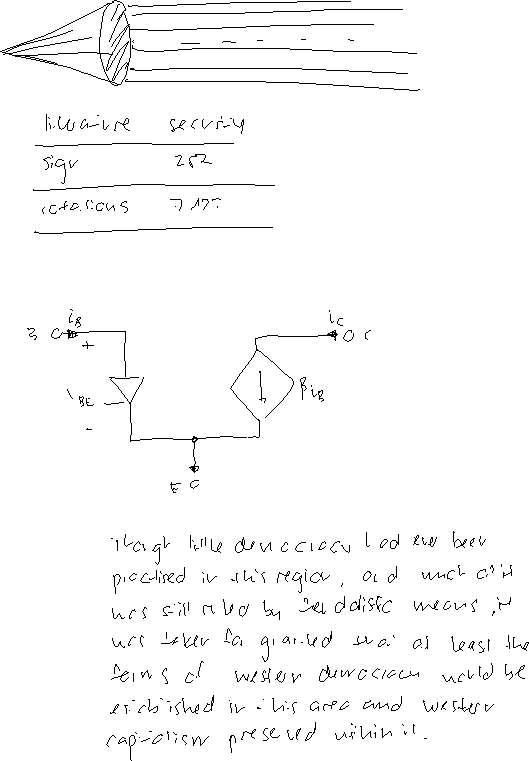 literature security
sign 252
rotations 7.177
iB iC
B + C
VBE βiB
-
E
though little democracy had ever been
practised in this region, and much of it
was still ruled by feudalistic means, it
was taken for granted that at least the
forms of western democracy would be
established in this area and western
capitalism preserved within it.